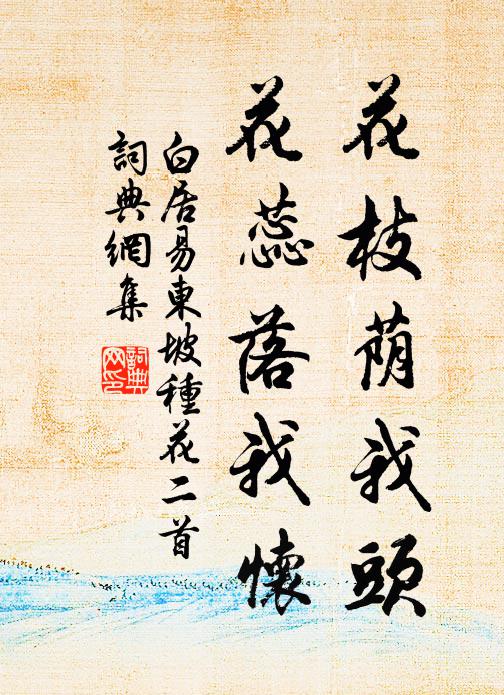 花枝荫我頭
花蕊落我懷
白居易東坡種花二首
詞典網集
詞典網印